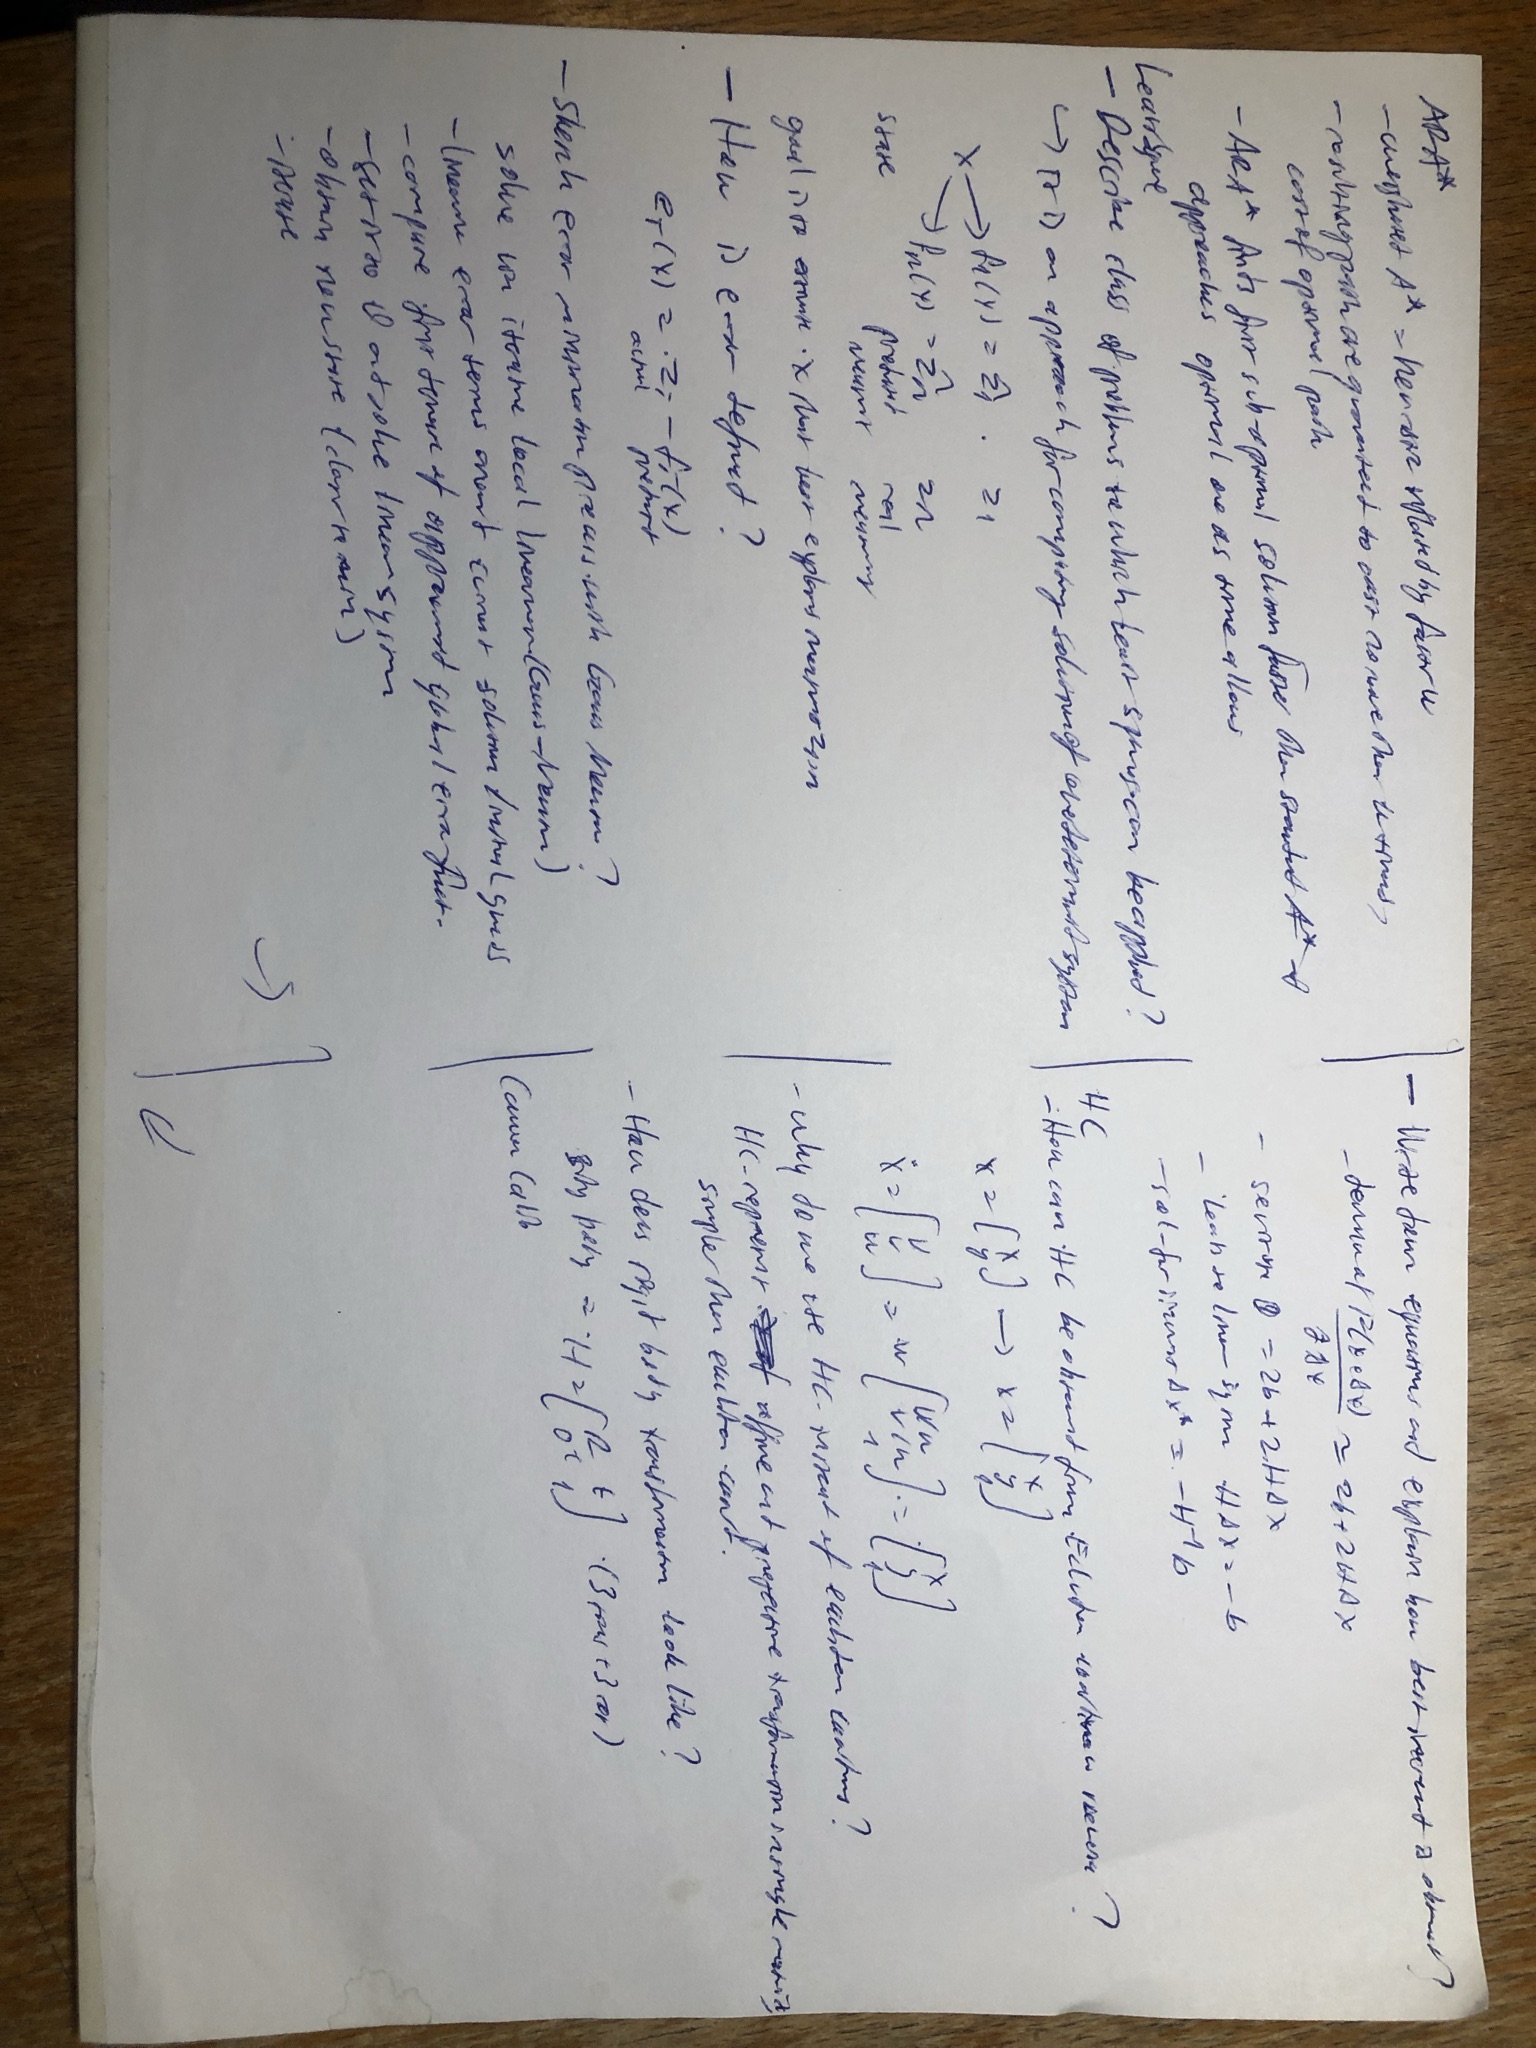 ARA*
- weighted A* = heuristic inflated by factor w
- resulting path are guaranteed to cost no more than w times
cost of optimal path
- ARA* finds first sub-optimal solution faster than standard A* →
approaches optimal one as time allows
Least Square
- Describe class of problems to which least squares can be applied?
↳ is an approach for computing solution of overdetermined system
x → f1(x) = ẑ1 z1
→ fn(x) = ẑn zn
state predicted real
goal is to estimate x that best explains
- How is error defined?
ei(x) = zi - fi(x)
actual predict
- Sketch error minimization process with Gauss Newton?
solve via iterative local (Gauss-Newton)
- linearize error terms around current solution / initial guess
- compute first derivative of global error funct.
- set it to 0 and solve linear system
- obtain new state
- iterate
- Write down equations and explain how best increment is obtained?
- = 2b + 2HΔx
- 0 = 2b + 2HΔx
- leads to linear system HΔx = -b
- sol. for increment Δx* = -H⁻¹b
HC
- How can HC be obtained from Euclidean coordinates
x = [x y] → x = [x y 1]
x = [u v w] = w [u/w v/w 1] = [x y 1]
- Why do we use HC instead of euclidean
HC represent affine and projective transformation in single matrix,
simpler than euclidean coord.
- How does rigid body transformation look like?
rigid body = H = [R t 0ᵀ 1] (3 trans + 3 rot)
Camera Calib